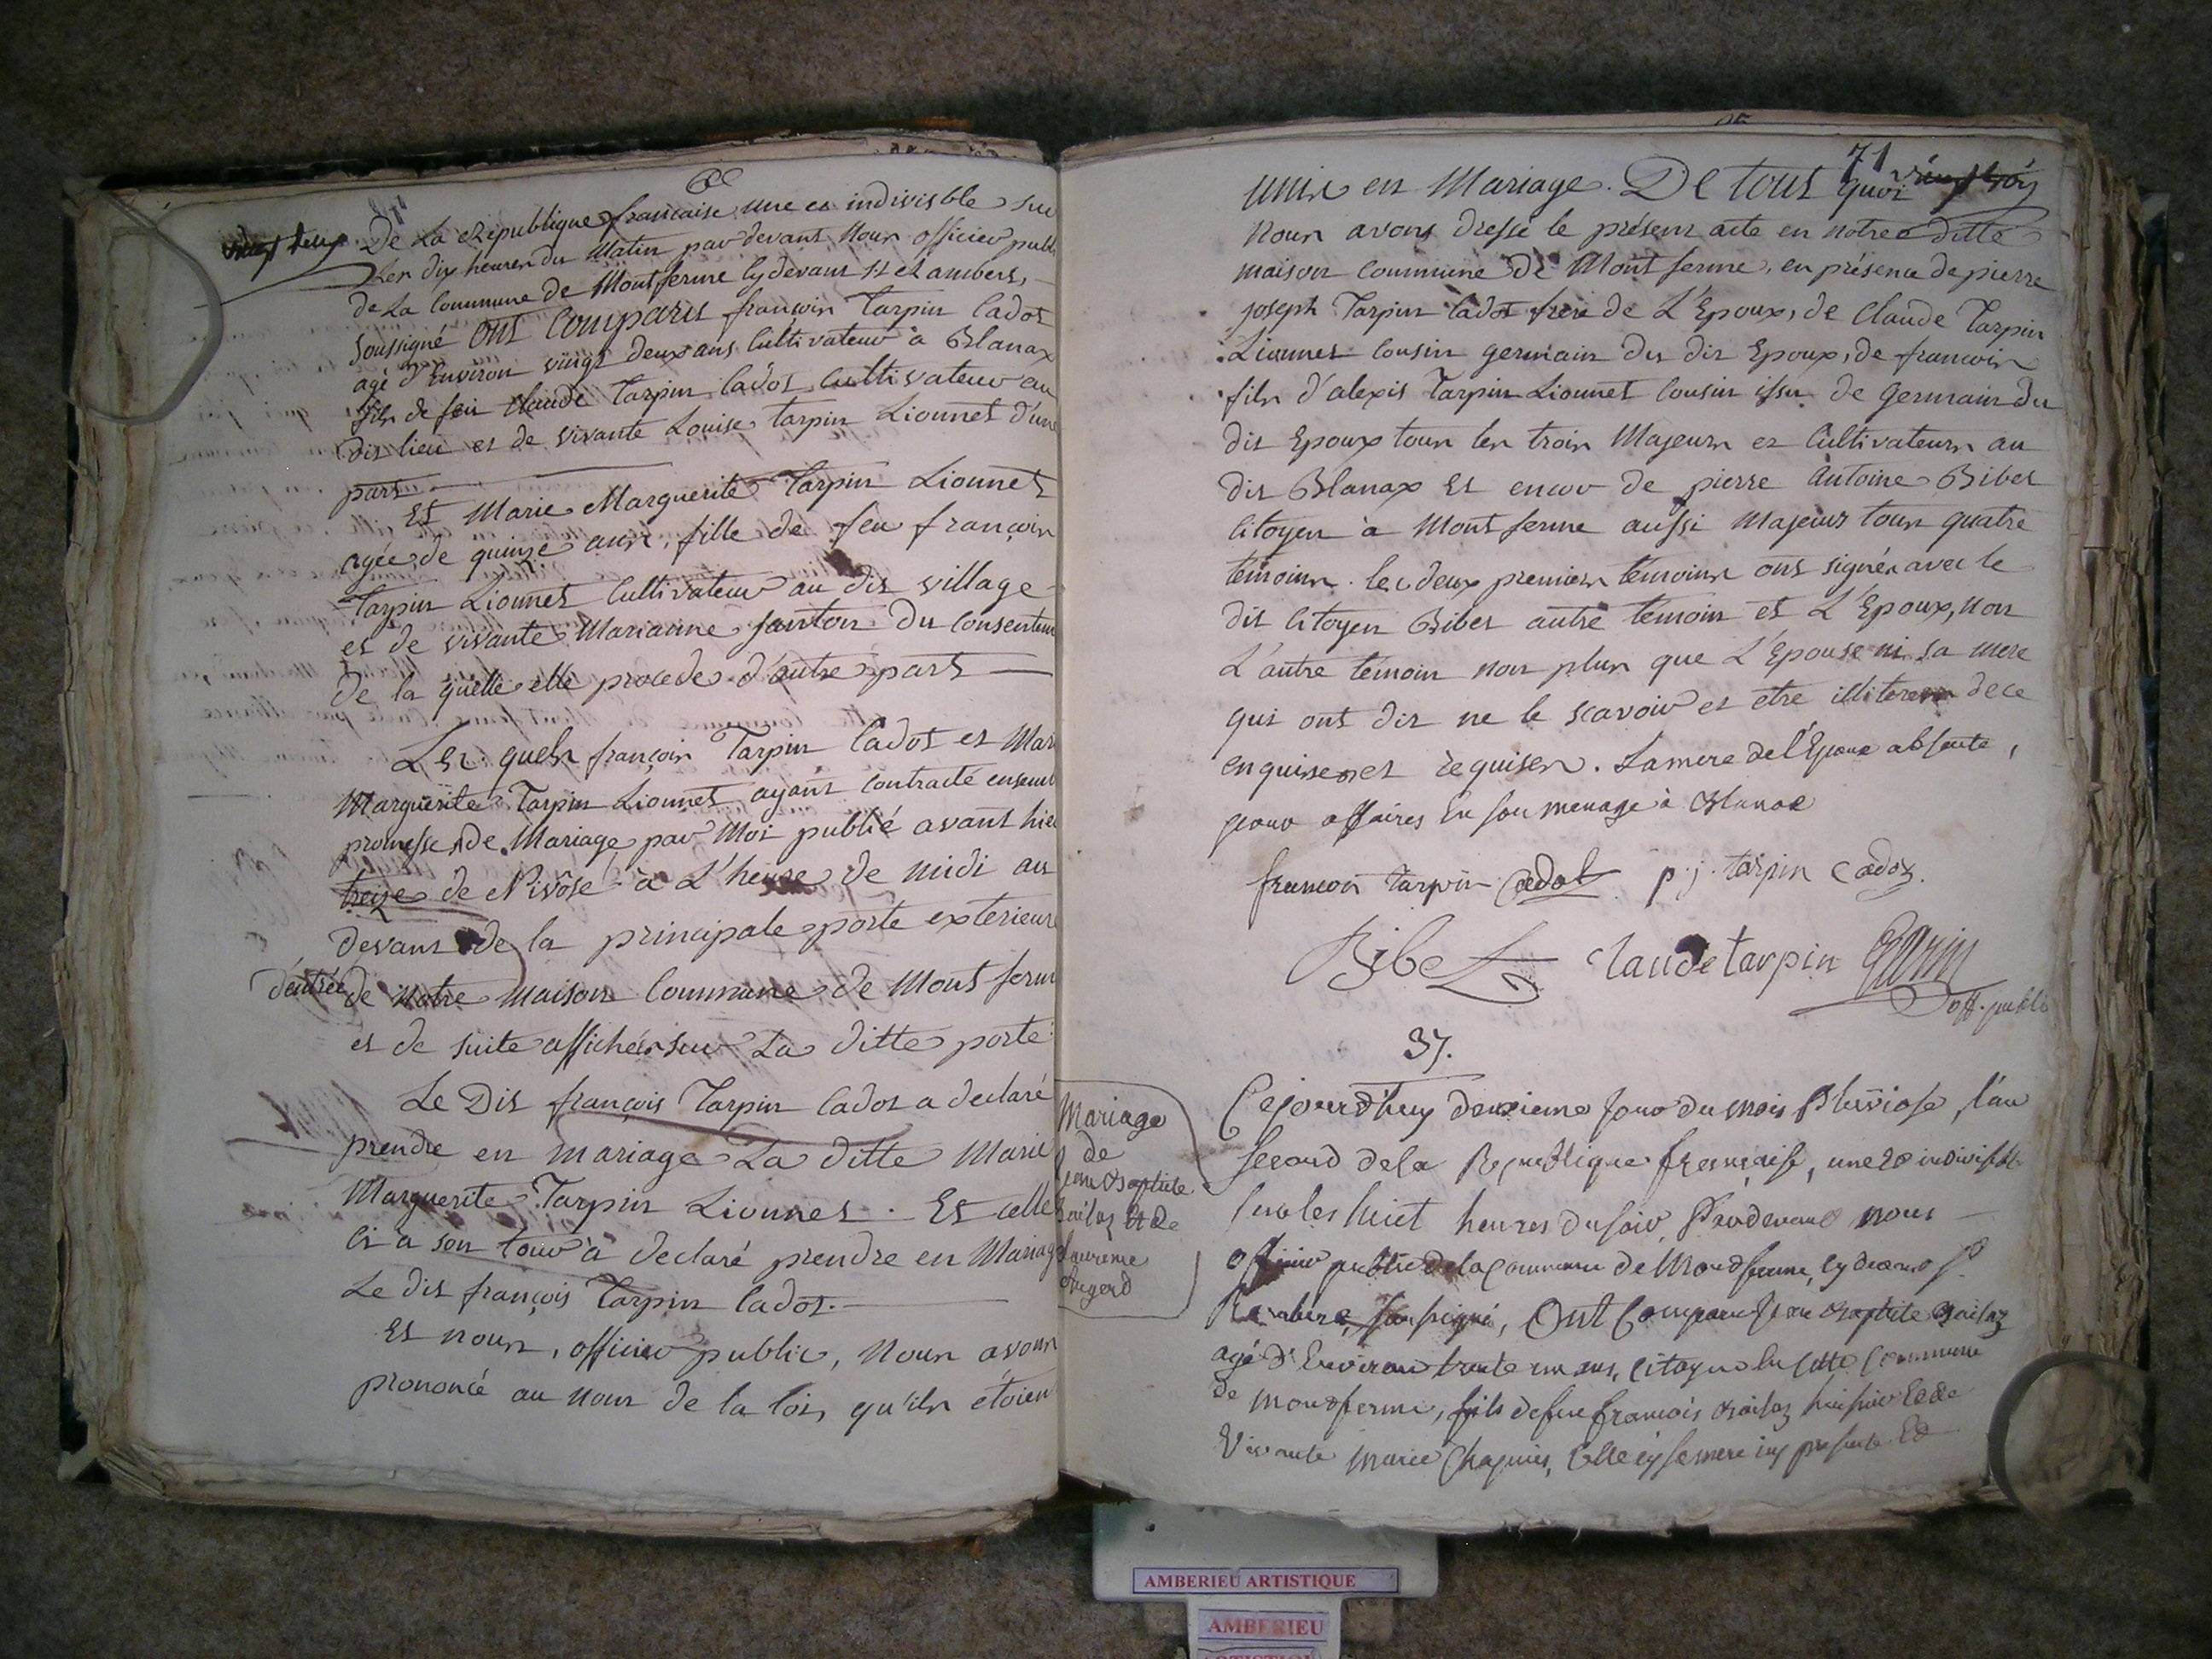 vingt deux
De La Republique francaise une et indivisble sur
Les dix heures du Matin par devant Nous officier publi
de La Commune de Montferme cydevant St Rambert,
soussigné ont comparu françois Tarpin Cadot
agé d'Environ vingt deux ans Cultivateur à Blanax
fils de feu Claude Tarpin Cadot cultivateur au
dit lieu et de vivante Louise Tarpin Lionnet d'une
part
Et Marie Marguerite Tarpin Lionnet
agée de quinze ans, fille de feu françois
Tarpin Lionnet Cultivateur au dit village
et de vivante Marianne Janton du consentem
de la quelle elle procede d'autre part
Les quels françois Tarpin Cadot et Mari
Marguerite Tarpin Lionnet ayant contracté ensemb
promesse de Mariage par Moi publié avant hier
treize de Nivôse à L'heure de midi au
devant de la principale porte exterieure
d'entrée de notre maison Commune de Montferm
et de suite affichée sur La ditte porte
Le Dit françois Tarpin Cadot a declaré
prendre en mariage La ditte Marie
Marguerite Tarpin Lionnet. Et celle
ci a son tour à declaré prendre en Mariage
Le dit françois Tarpin Cadot.
Et nous, officier public, Nous avons
prononcé au nom de la loi, qu'ils étoien
71
unis en Mariage. De tout quoi
nous avons dressé le présent acte en notre ditte
maison commune de Montferme, en présence de pierre
joseph Tarpin Cadot frere de L'Epoux, de Claude Tarpin
Lionnet cousin germain du dit Epoux, de francois
fils d'alexis Tarpin Lionnet Cousin issu de Germain du
dit Epoux tous les trois Majeurs et Cultivateurs au
dit Blanax Et encor de pierre Antoine Bibet
Citoyen à Montferme aussi Majeur tous quatre
témoins. les deux premiers temoins ont signés avec le
dit Citoyen Bibet autre temoin et L'Epoux, non
L'autre témoin non plus que L'Epouse ni sa mere
qui ont dit ne le scavoir et etre illiteres de ce
enquises et requises. La mere de l'Epoux absente,
pour affaires En son menage à Blanax
francois tarpin Cadot p. j. tarpin Cadoz.
Bibet Claude tarpin
off. public
37.
Mariage
de
Jean Baptiste
Et de
Laurence
Augerd
Cejourd'huy deuxieme jour du mois Pluviose, l'an
second de la Republique française, une et indivisible
sur les huit heures du soir, Pardevant nous
officier public de la Commune de Montferme, cy devant St
Rambert, soussigné, Ont Comparu Jean Baptiste
agé d'Environ trente un ans, Citoyen de cette Commune
de Montferme, fils de feu francois huissier Et de
Vivante Marie Chapuis, Celle cy sa mere icy presente Et
AMBERIEU ARTISTIQUE
AMBERIEU
ARTISTIQUE